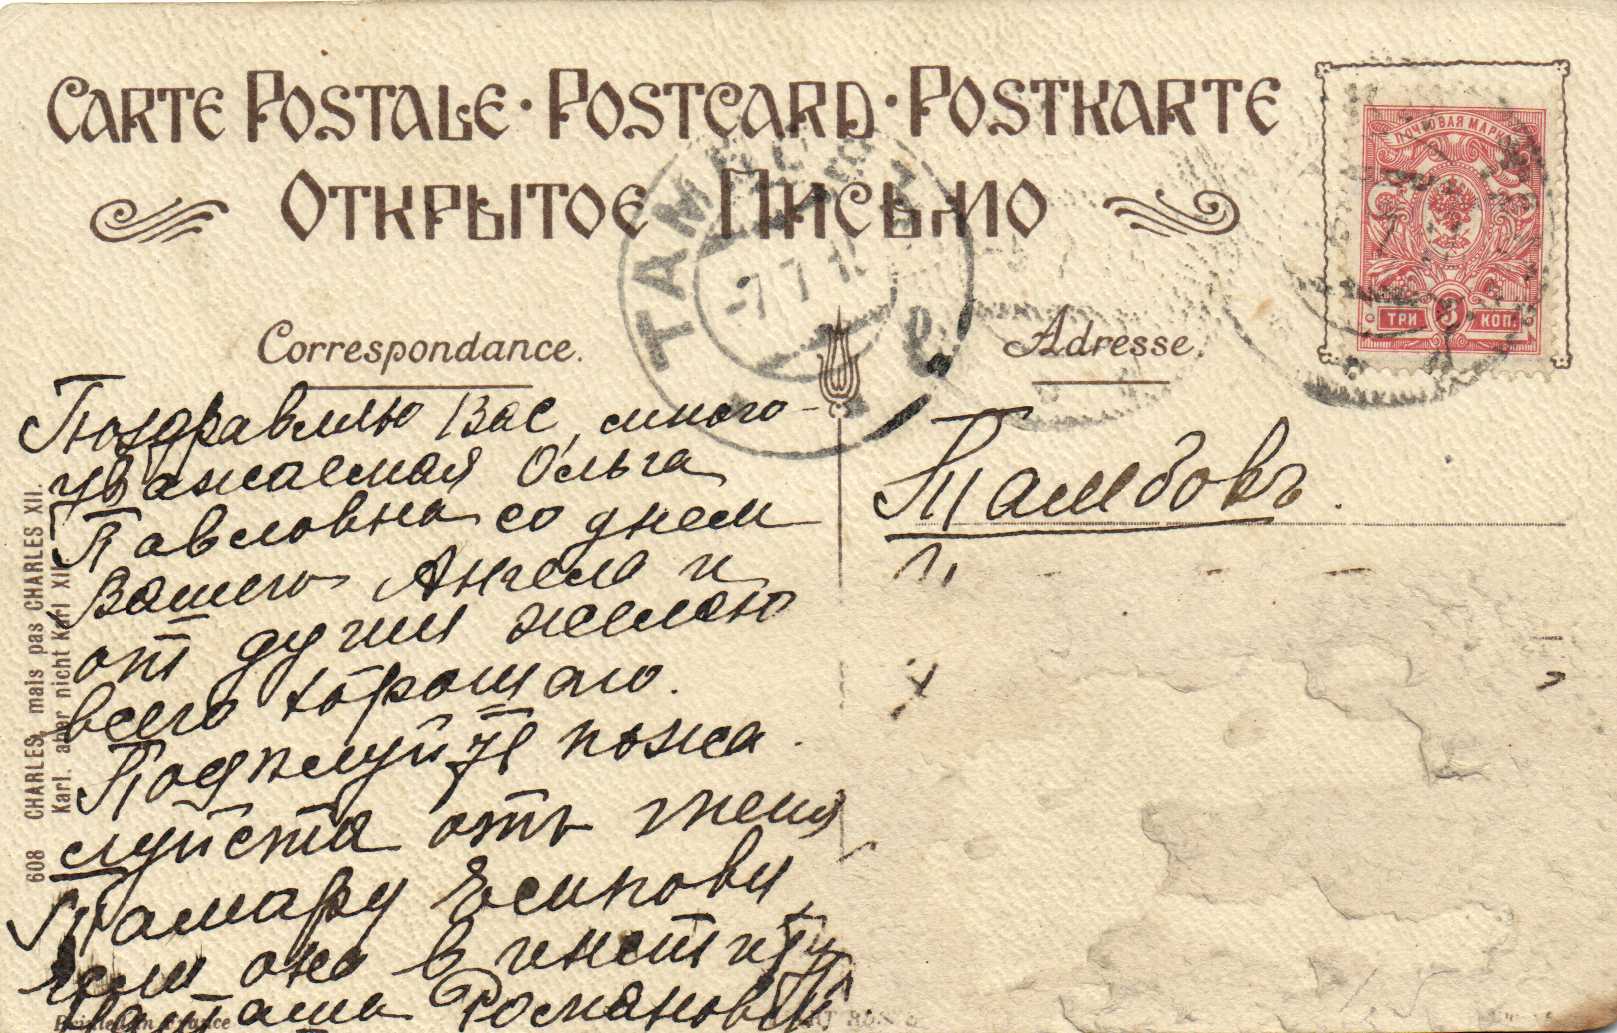 CARTE POSTALE · POSTCARD · POSTKARTE
ОТКРЫТОЕ ПИСЬМО
ПОЧТОВАЯ МАРКА
ТРИ 3 КОП.
ТАМБ
7 7 1
Correspondance.
Adresse.
Поздравляю Вас, много-
уважаемая Ольга
Павловна со днем
Вашего Ангела и
от души желаю
всего хорошаго.
Поцелуйте пожа
луйста отъ меня
Тамару Есипову
если она в институ
Романов
Тамбовъ.
608 CHARLES, mais pas CHARLES XII.
Karl. aber nicht Karl XII.
Printed in France